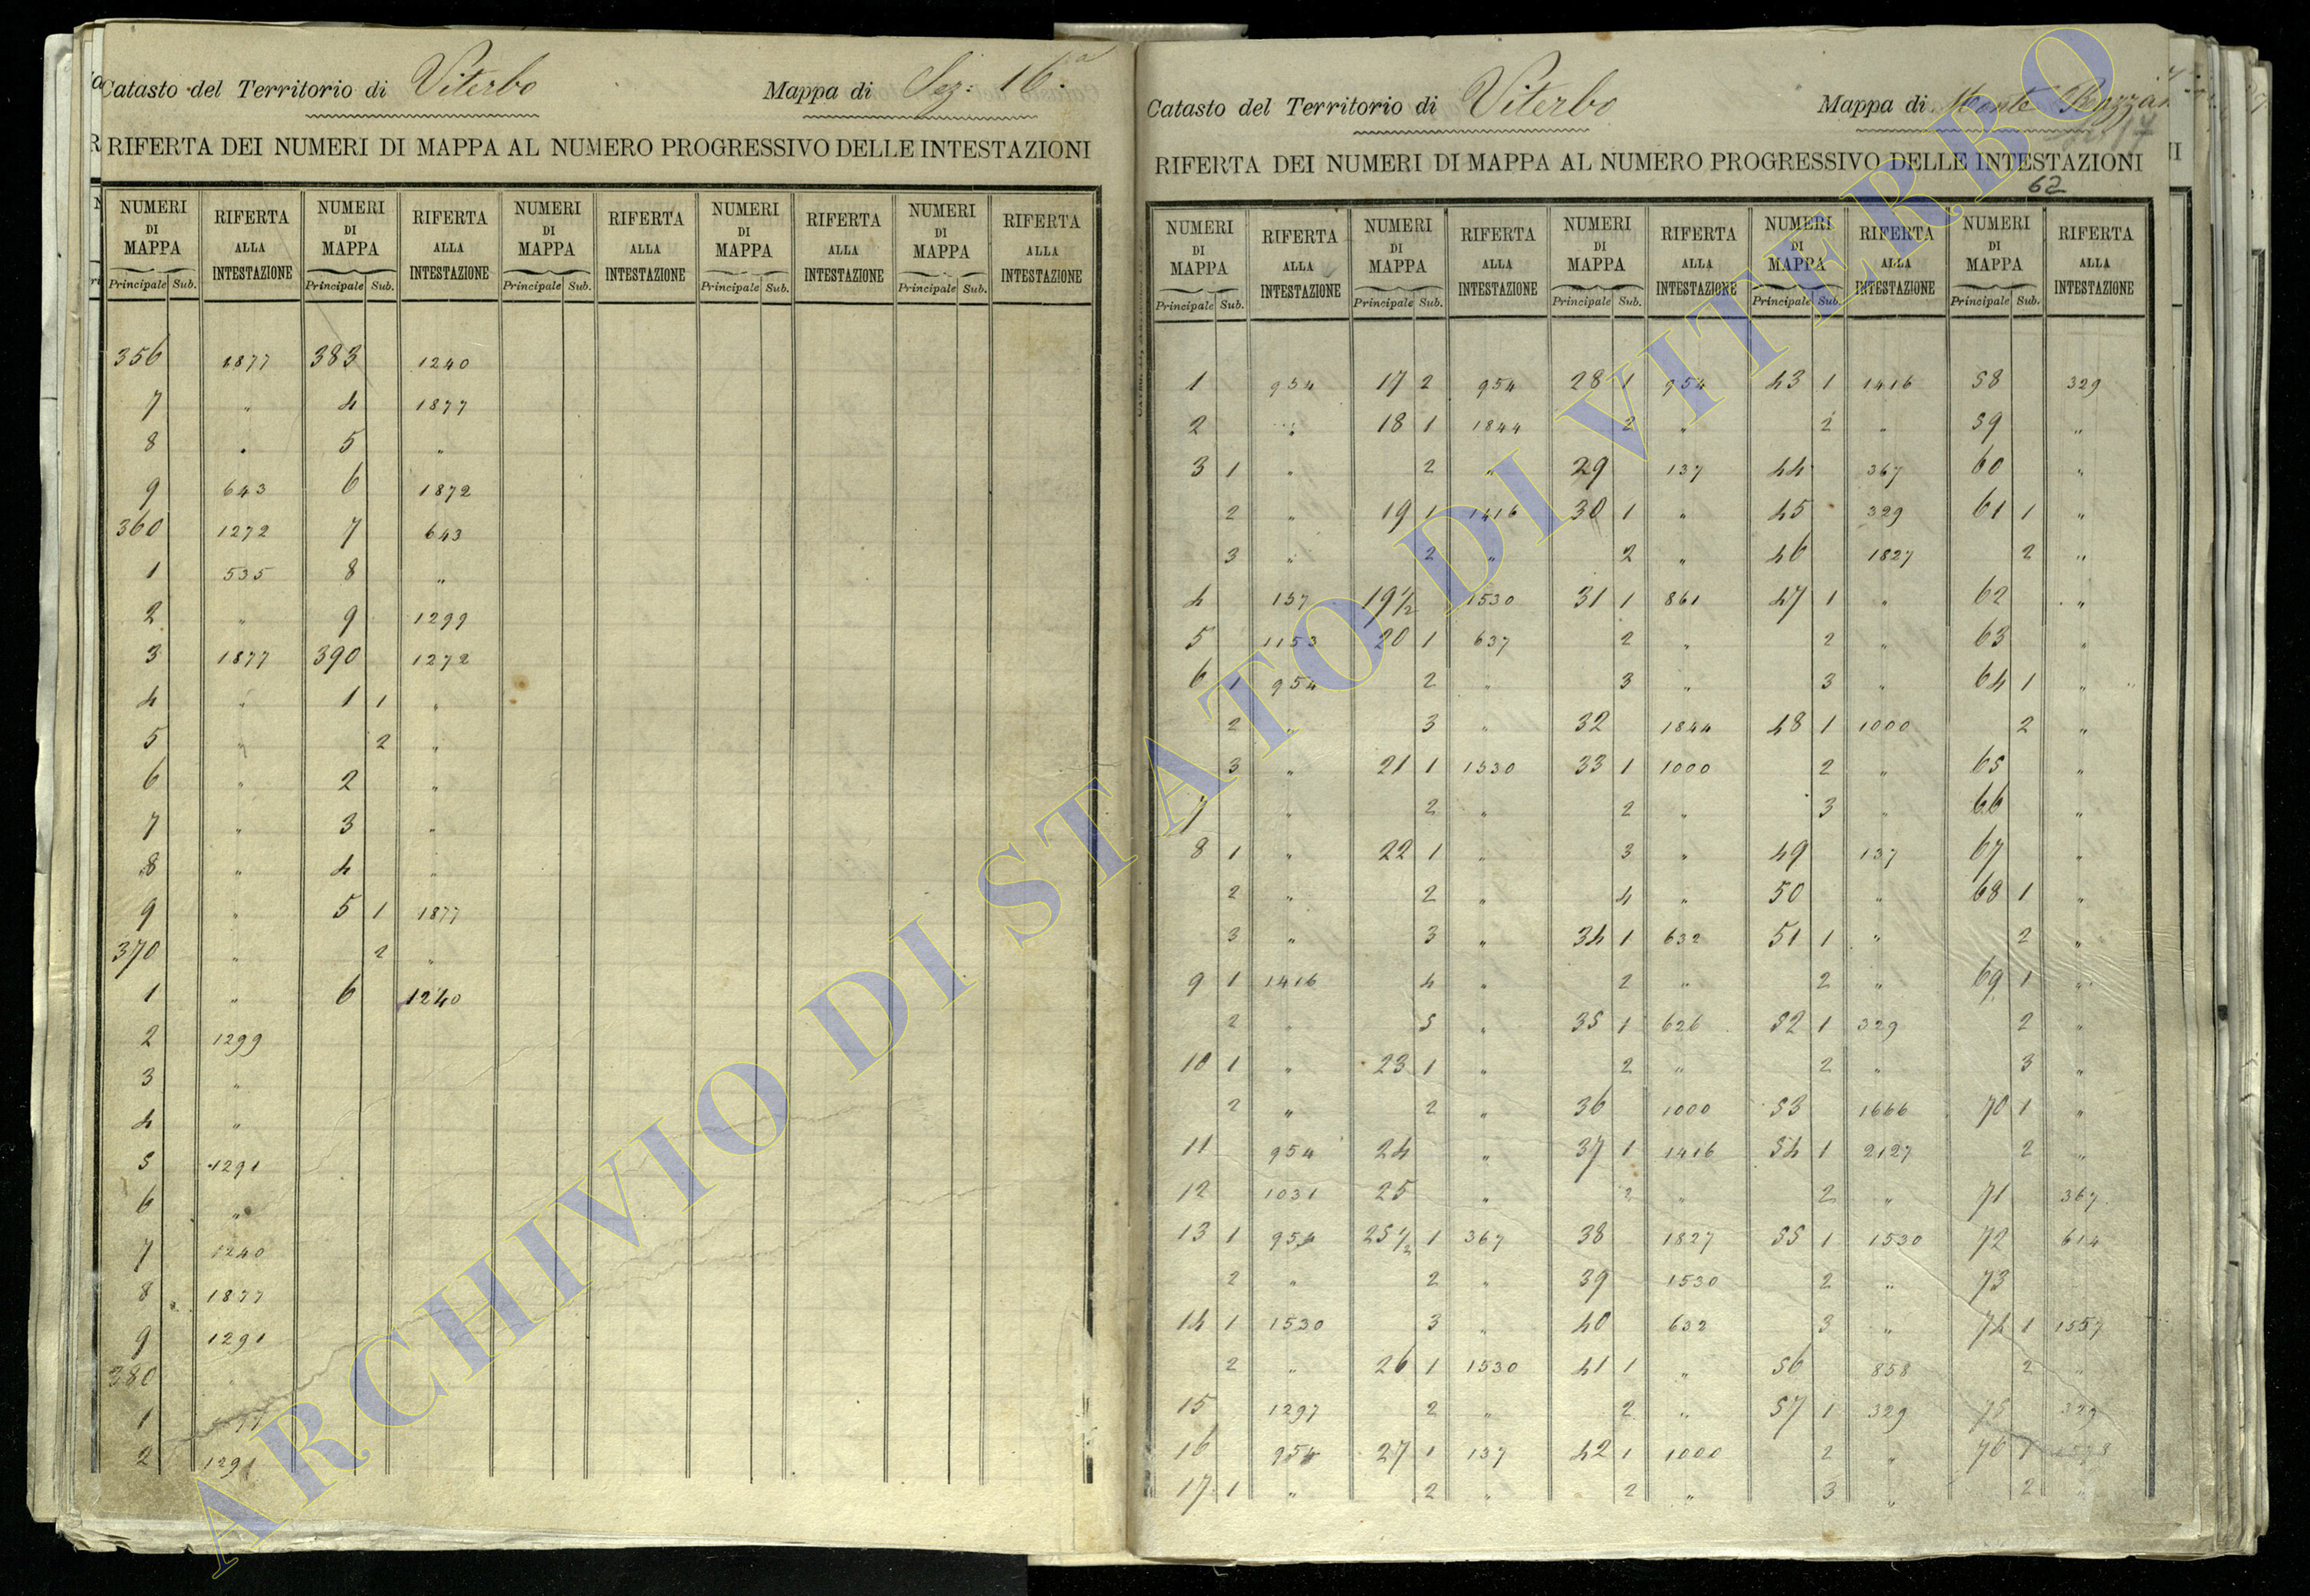 Catasto del Territorio di Viterbo Mappa di Sez: 16.a
RIFERTA DEI NUMERI DI MAPPA AL NUMERO PROGRESSIVO DELLE INTESTAZIONI
NUMERI DI MAPPA RIFERTA ALLA INTESTAZIONE NUMERI DI MAPPA RIFERTA ALLA INTESTAZIONE NUMERI DI MAPPA RIFERTA ALLA INTESTAZIONE NUMERI DI MAPPA RIFERTA ALLA INTESTAZIONE NUMERI DI MAPPA RIFERTA ALLA INTESTAZIONE
Principale Sub. Principale Sub. Principale Sub. Principale Sub. Principale Sub.
356 1877 383 1240
7 " 4 1877
8 " 5 "
9 643 6 1872
360 1272 7 643
1 535 8 "
2 " 9 1299
3 1877 390 1272
4 " 1 1 "
5 " 2 "
6 " 2 "
7 " 3 "
8 " 4 "
9 " 5 1 1877
370 " 2 "
1 " 6 1240
2 1299
3 "
4 "
5 1291
6 "
7 1240
8 1877
9 1291
380 "
1
2 1291
Catasto del Territorio di Viterbo Mappa di Monte
RIFERTA DEI NUMERI DI MAPPA AL NUMERO PROGRESSIVO DELLE INTESTAZIONI
62
NUMERI DI MAPPA RIFERTA ALLA INTESTAZIONE NUMERI DI MAPPA RIFERTA ALLA INTESTAZIONE NUMERI DI MAPPA RIFERTA ALLA INTESTAZIONE NUMERI DI MAPPA RIFERTA ALLA INTESTAZIONE NUMERI DI MAPPA RIFERTA ALLA INTESTAZIONE
Principale Sub. Principale Sub. Principale Sub. Principale Sub. Principale Sub.
1 954 17 2 954 28 1 954 43 1 1416 58 329
2 " 18 1 1844 2 " 2 " 59 "
3 1 " 2 " 29 137 44 367 60 "
2 " 19 1 1416 30 1 " 45 329 61 1 "
3 " 2 " 2 " 46 1827 2 "
4 137 19 1/2 1530 31 1 861 47 1 " 62 "
5 1153 20 1 637 2 " 2 " 63 "
6 1 954 2 " 3 " 3 " 64 1 "
2 " 3 " 32 1844 48 1 1000 2 "
3 " 21 1 1530 33 1 1000 2 " 65 "
7 " 2 " 2 " 3 " 66 "
8 1 " 22 1 " 3 " 49 137 67 "
2 " 2 " 4 " 50 " 68 1 "
3 " 3 " 34 1 632 51 1 " 2 "
9 1 1416 4 " 2 " 2 " 69 1 "
2 " 5 " 35 1 626 52 1 329 2 "
10 1 " 23 1 " 2 " 2 " 3 "
2 " 2 " 36 1000 53 1666 70 1 "
11 954 24 " 37 1 1416 54 1 2127 2 "
12 1031 25 " 2 " 2 " 71 367
13 1 954 25 1/2 1 367 38 1827 55 1 1530 72 614
2 " 2 " 39 1530 2 " 73
14 1 1530 3 " 40 632 3 " 74 1 1557
2 " 26 1 1530 41 1 " 56 858 2 "
15 1297 2 " 2 " 57 1 329 75 329
16 954 27 1 137 42 1 1000 2 " 76 1
17 1 " 2 " 2 " 3 " 2 "
ARCHIVIO DI STATO DI VITERBO